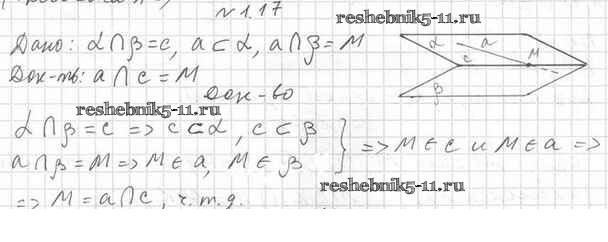 №1.17
reshebnik5-11.ru
Дано: α∩β=c, a⊂α, a∩β=M
Док-ть: a∩c=M
α a M c β
Док-во
reshebnik5-11.ru
α∩β=c => c⊂α, c⊂β
a∩β=M => M∈a, M∈β } => M∈c и M∈a =>
reshebnik5-11.ru
=> M=a∩c, ч.т.д.